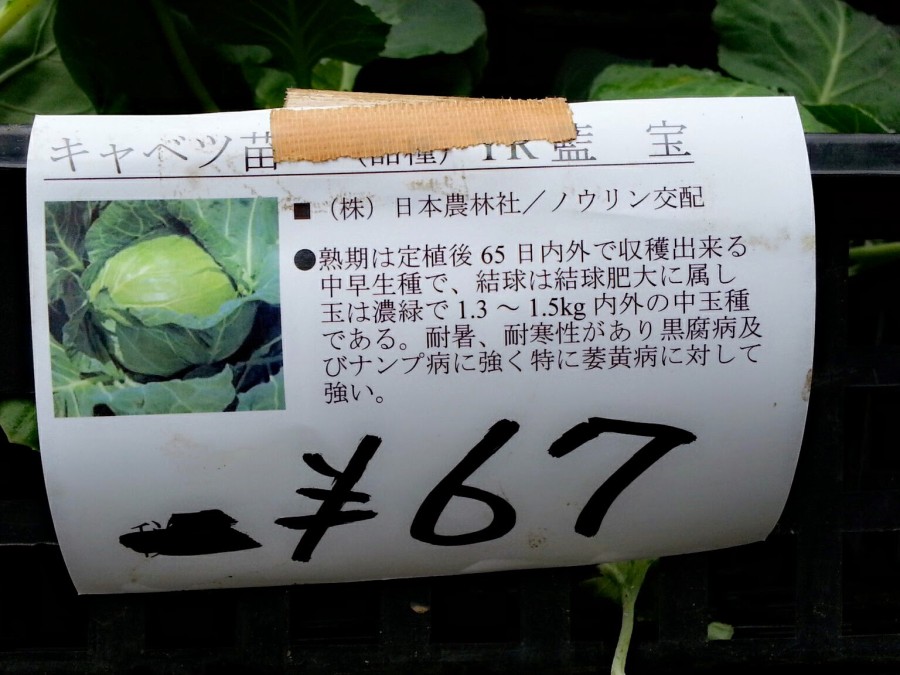 キャベツ苗 （品種） YR 藍 宝
■（株）日本農林社／ノウリン交配
●熟期は定植後 65 日内外で収穫出来る
中早生種で、結球は結球肥大に属し
玉は濃緑で 1.3 ～ 1.5kg 内外の中玉種
である。耐暑、耐寒性があり黒腐病及
びナンプ病に強く特に萎黄病に対して
強い。
¥67